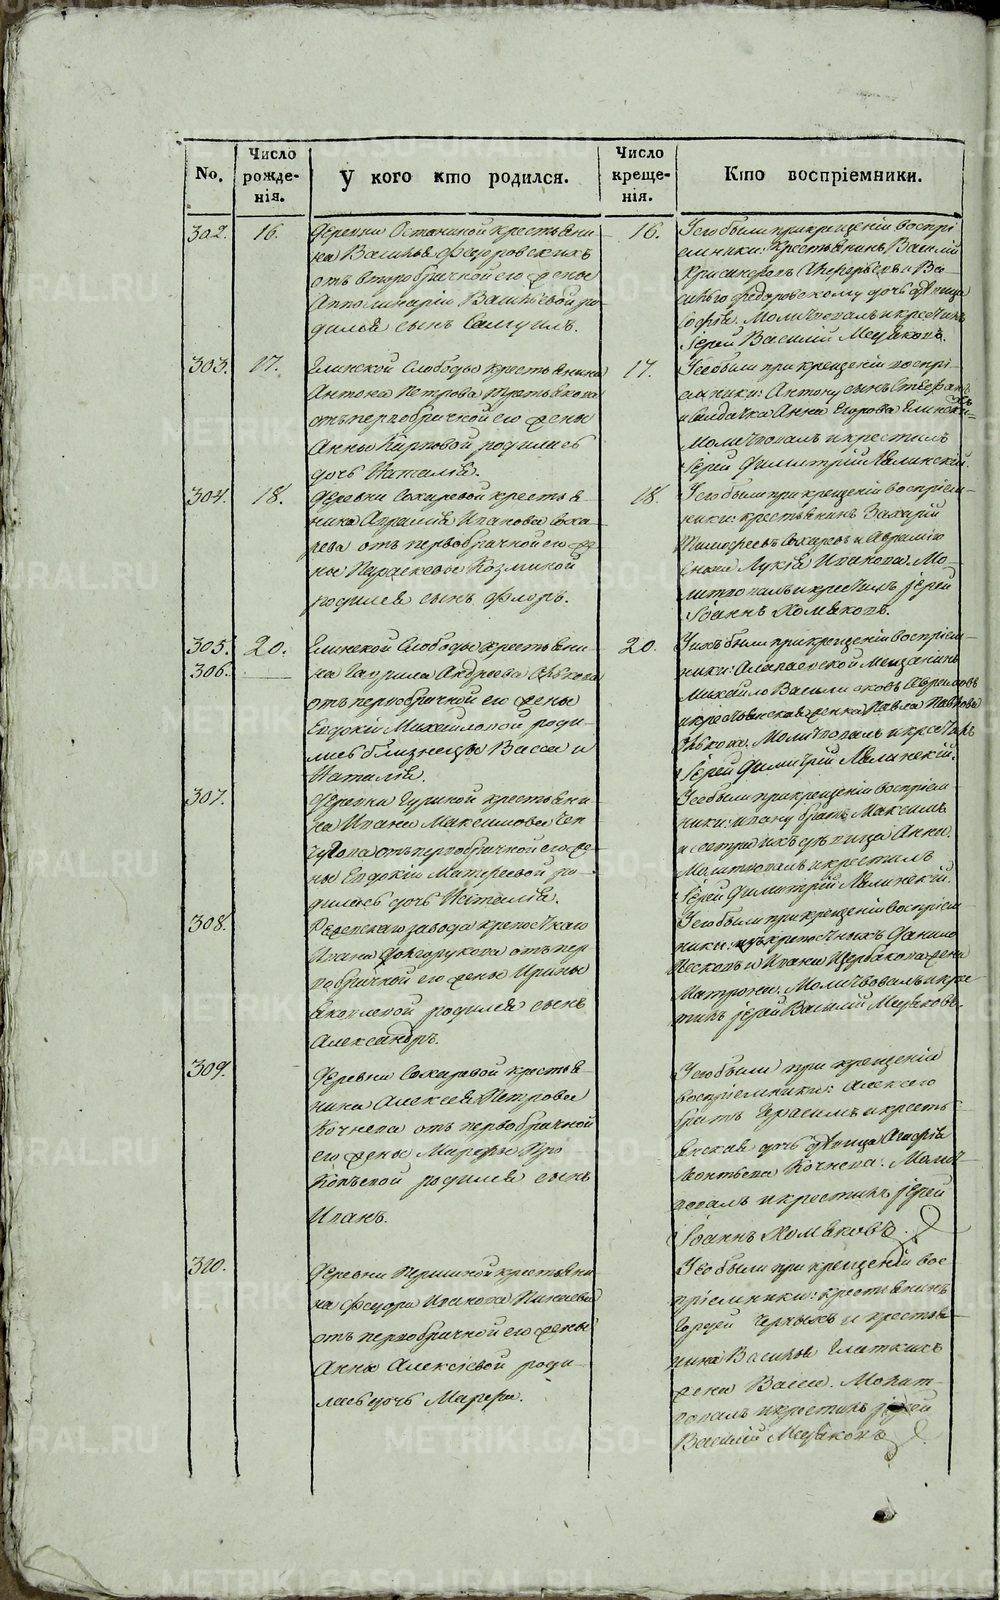 No.
Число рожденія.
У кого кто родился.
Число крещенія.
Кто воспріемники.
302.
16.
Деревни Останиной крестьяни
на Василья Федоровскихъ
отъ второбрачной его жены
Апполинаріи Васильевой ро
дился сынъ Самуилъ.
16.
У его были при крещеніи воспрі
емники: Крестьянинъ Василій
Ва-
силья Федоровскому дочь дѣвица
Софія. Молитвовалъ и крестилъ
Іерей Василій Мефьковъ.
303.
17.
Глинской Слободы крестьянина
Антона Петрова Третьякова
отъ первобрачной его жены
Анны Карповой родилась
дочь Наталія.
17.
У ее были при крещеніи воспрі-
емники: Антону сынъ Стефанъ
и Солдатка Анна Егорова Глинских
Молитвовалъ и крестилъ
Іерей Димитрій Ляпинскій.
304.
18.
Деревни Сохаревой крестья-
нина Иванова Соха-
рева отъ первобрачной его же-
ны Параскевы Козминой
родился сынъ Флоръ.
18.
У его были при крещеніи воспріем-
ники: крестьянинъ Захарій
Тимофеевъ Сохаревъ и
Лукія Иванова. Мо-
литвовалъ и крестилъ Іерей
Іоаннъ Хомяковъ.
305.
306.
20.
Глинской Слободы крестьяни-
на Гаврила Андреева
отъ первобрачной его жены
Евдокіи Михайловой роди-
лись близнецы Васса и
Наталія.
20.
У нихъ были при крещеніи воспріем-
ники: Алапаевской Мещанинъ
Михайло Васильи
и крестьянская женка Павла
Молитвовалъ и крестилъ
Іерей Димитрій Ляпинскій.
307.
Деревни Гуриной крестьяни-
на Ивана Максимова Чеп
чугова отъ первобрачной его же-
ны Евдокіи Матвеевой ро-
дилась дочь Наталія.
У ее были при крещеніи воспріем-
ники: Ивану братъ Максимъ
и сестра ихъ дѣвица Анна.
Молитвовалъ и крестилъ
Іерей Димитрій Ляпинскій.
308.
Режевскаго завода крепостнаго
Ивана Долгорукова отъ пер
вобрачной его жены Ирины
Яковлевой родился сынъ
Александръ.
У его были при крещеніи воспріем
ники: изъ крепостныхъ Данило
Песковъ и Ивана Щербакова жена
Матрона. Молитвовалъ и кре
стилъ Іерей Василій Мефьковъ.
309.
Деревни Сохаревой крестья-
нина Алексея Петрова
Кочнева отъ первобрачной
его жены Марфы Про
копьевой родился сынъ
Иванъ.
У его были при крещеніи
воспріемники: Алексею
братъ Герасимъ и кресть
янская дочь дѣвица Агафія
Леонтьева Кочнева. Молит
вовалъ и крестилъ Іерей
Іоаннъ Хомяковъ.
310.
Деревни Першиной крестьяни
на Федора Иванова Пинаева
отъ первобрачной его жены
Анны Алексіевой роди-
лась дочь Марфа.
У ее были при крещеніи вос
пріемники: крестьянинъ
Гордей Черныхъ и крестья-
нина Василья Глаткихъ
жена Васса. Молит-
вовалъ и крестилъ Іерей
Василій Мефьковъ